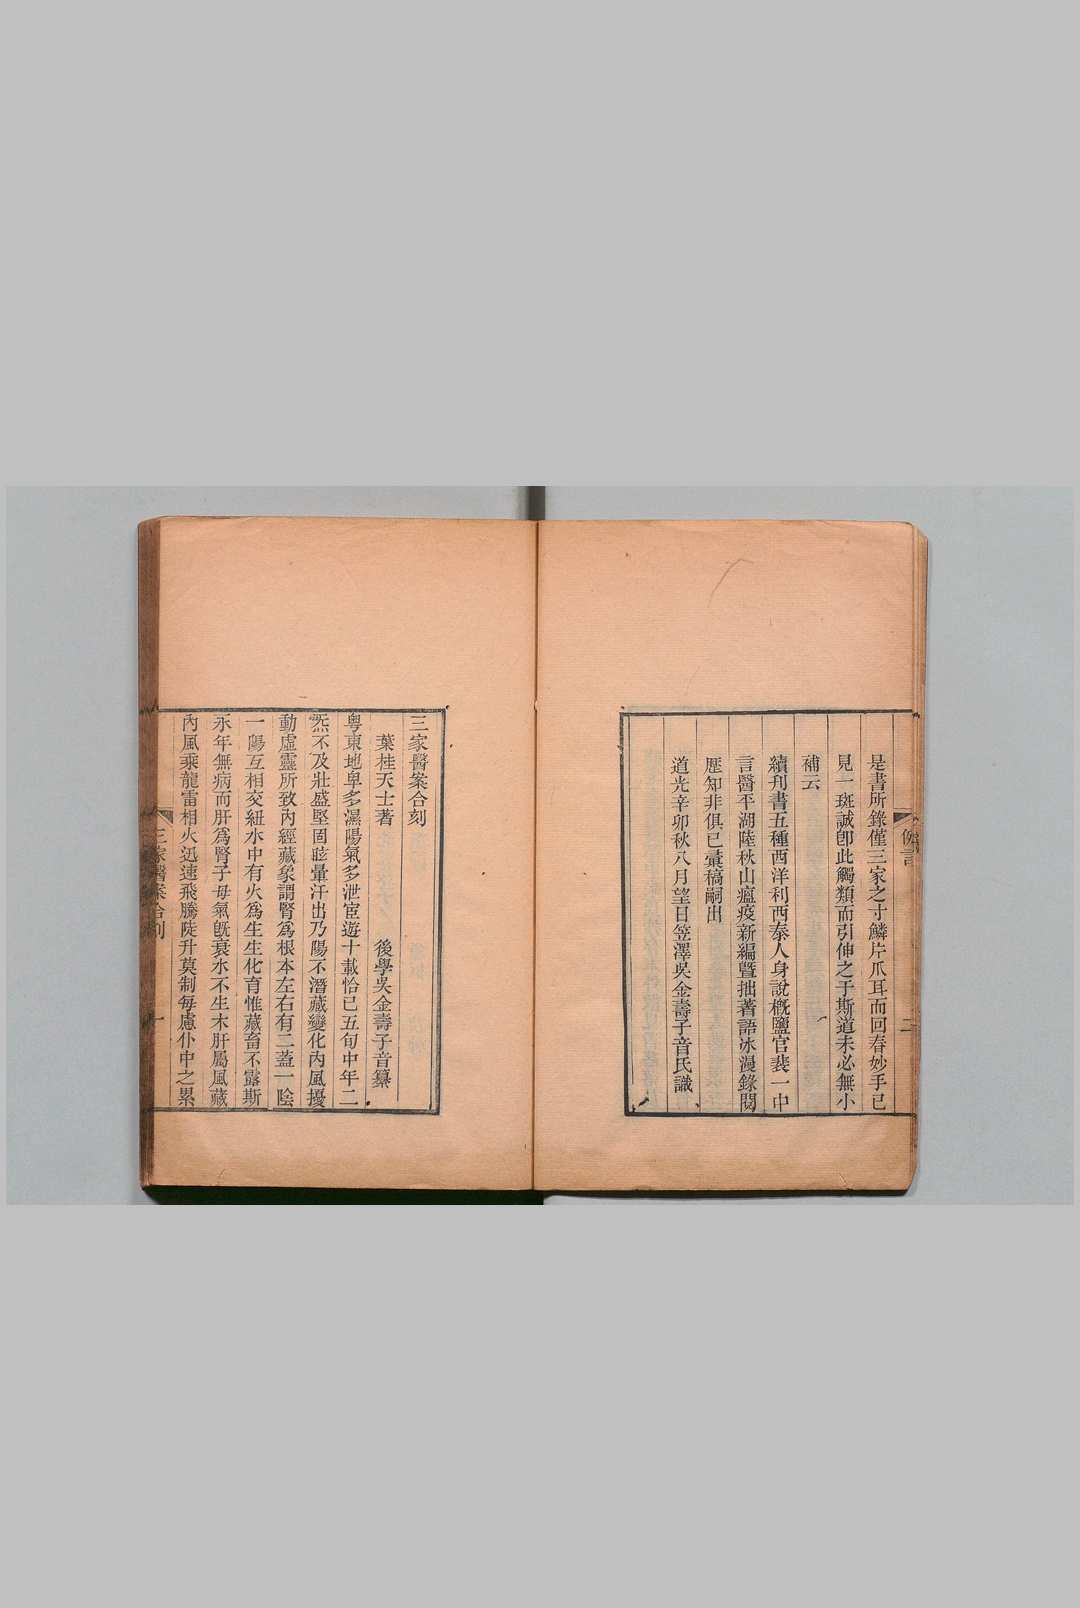 是書所錄僅三家之寸鱗片爪耳而回春妙手已
見一斑誠卽此觸類而引伸之于斯道未必無小
補云
續刊書五種西洋利西泰人身說概鹽官裴一中
言醫平湖陸秋山瘟疫新編曁拙著語冰漫錄閱
歷知非俱已彙稿嗣出
道光辛卯秋八月望日笠澤吳金壽子音氏識
三家醫案合刻
葉桂天士著 後學吳金壽子音纂
粵東地卑多濕陽氣多泄宦遊十載恰已五旬中年二
炁不及壯盛堅固眩暈汗出乃陽不潛藏變化內風擾
動虛靈所致內經藏象謂腎爲根本左右有二蓋一陰
一陽互相交紐水中有火爲生生化育惟藏畜不露斯
永年無病而肝爲腎子母氣旣衰水不生木肝屬風藏
內風乘龍雷相火迅速飛騰陡升莫制每慮仆中之累
三家醫案合刻
一